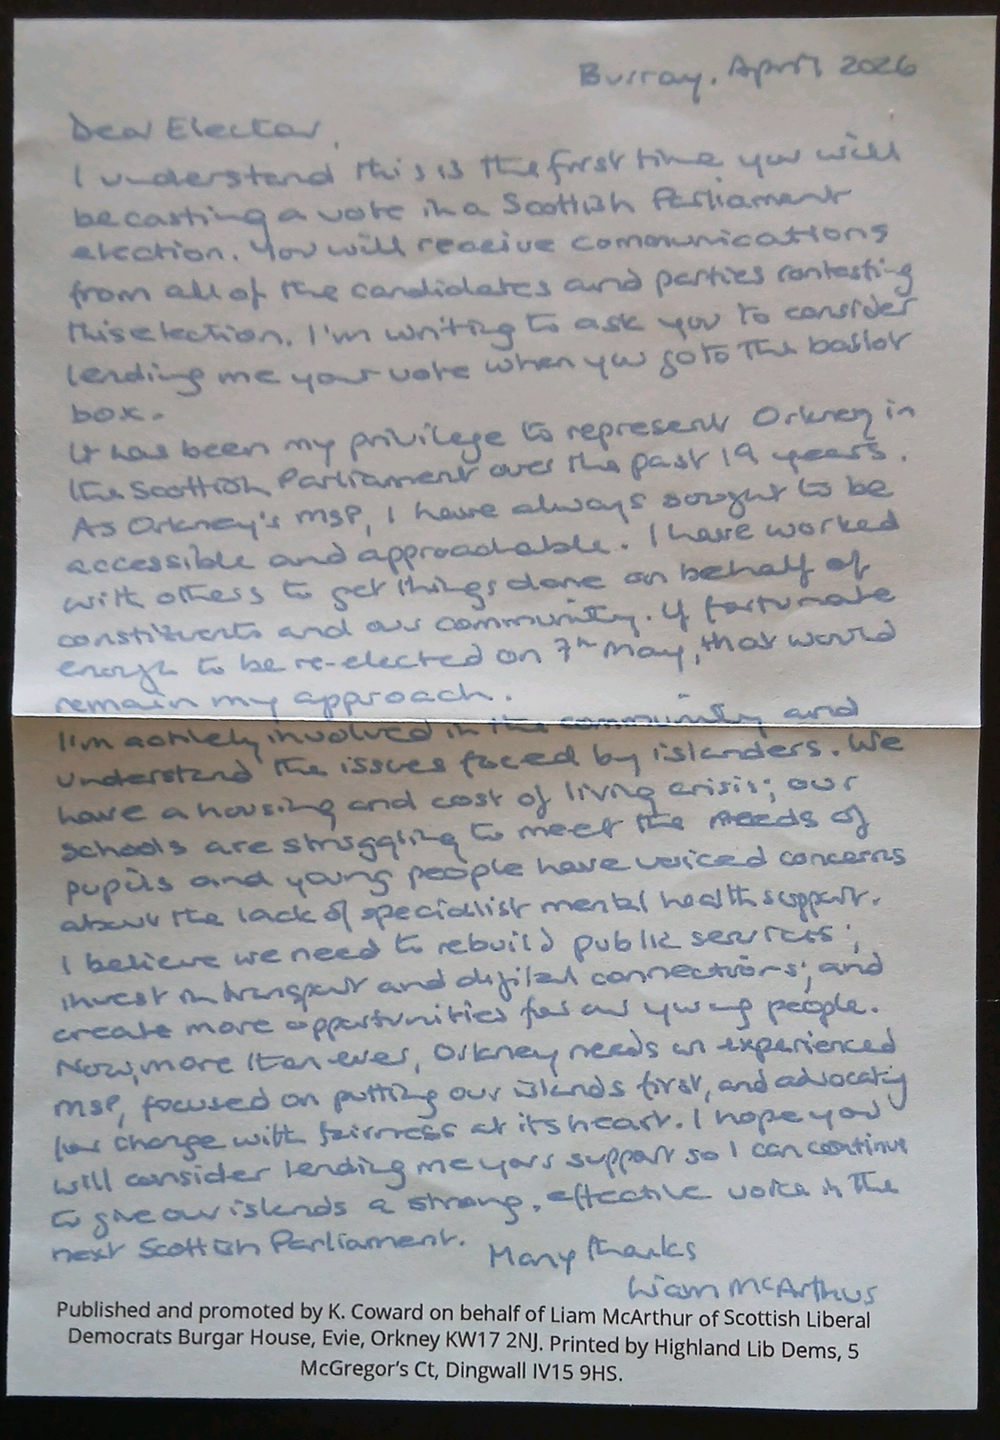 Burray, April 2026
Dear Elector,
I understand this is the first time you will
be casting a vote in a Scottish Parliament
election. You will receive communications
from all of the candidates and parties contesting
this election. I'm writing to ask you to consider
lending me your vote when you go to the ballot
box.
It has been my privilege to represent Orkney in
the Scottish Parliament over the past 19 years.
As Orkney's MSP, I have always sought to be
accessible and approachable. I have worked
with others to get things done on behalf of
constituents and our community. If fortunate
enough to be re-elected on 7th May, that would
remain my approach.
I'm actively involved in the community and
understand the issues faced by islanders. We
have a housing and cost of living crisis; our
schools are struggling to meet the needs of
pupils and young people have voiced concerns
about the lack of specialist mental health support.
I believe we need to rebuild public services;
invest in transport and digital connections; and
create more opportunities for our young people.
Now, more than ever, Orkney needs an experienced
MSP, focused on putting our islands first, and advocating
for change with fairness at its heart. I hope you
will consider lending me your support so I can continue
to give our islands a strong, effective voice in the
next Scottish Parliament.
Many thanks
Liam McArthur
Published and promoted by K. Coward on behalf of Liam McArthur of Scottish Liberal
Democrats Burgar House, Evie, Orkney KW17 2NJ. Printed by Highland Lib Dems, 5
McGregor's Ct, Dingwall IV15 9HS.